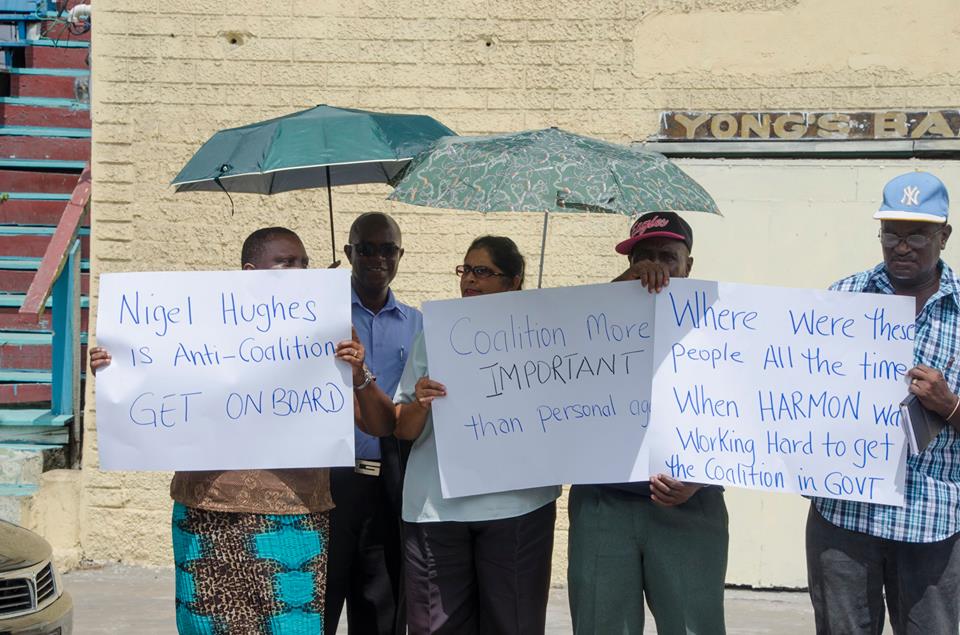 YONG'S BA
NY
Eagles
Nigel Hughes
is Anti-Coalition
GET ON BOARD
Coalition More
IMPORTANT
than personal
Where were these
people All the time
When HARMON
Working Hard to get
the Coalition in GOVT